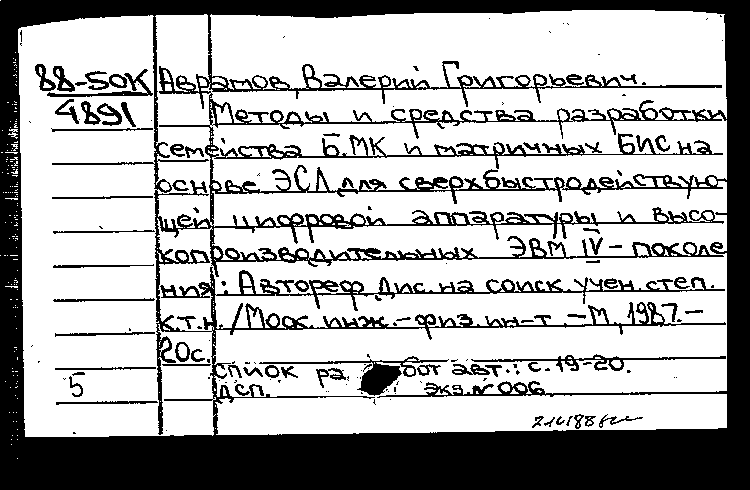 88-50К Аврамов, Валерий Григорьевич.
4891 Методы и средства разработки
семейства БМК и матричных БИС на
основе ЭСЛ для сверхбыстродействую-
щей цифровой аппаратуры и высо-
копроизводительных ЭВМ IV - поколе
ния: Автореф. Дис. на соиск. учен. степ.
к.т.н. /Моск. инж.-физ. ин-т. -М., 1987.-
20с.
список ра бот авт.: с. 19-20.
5 ДСП. экз. № 006.